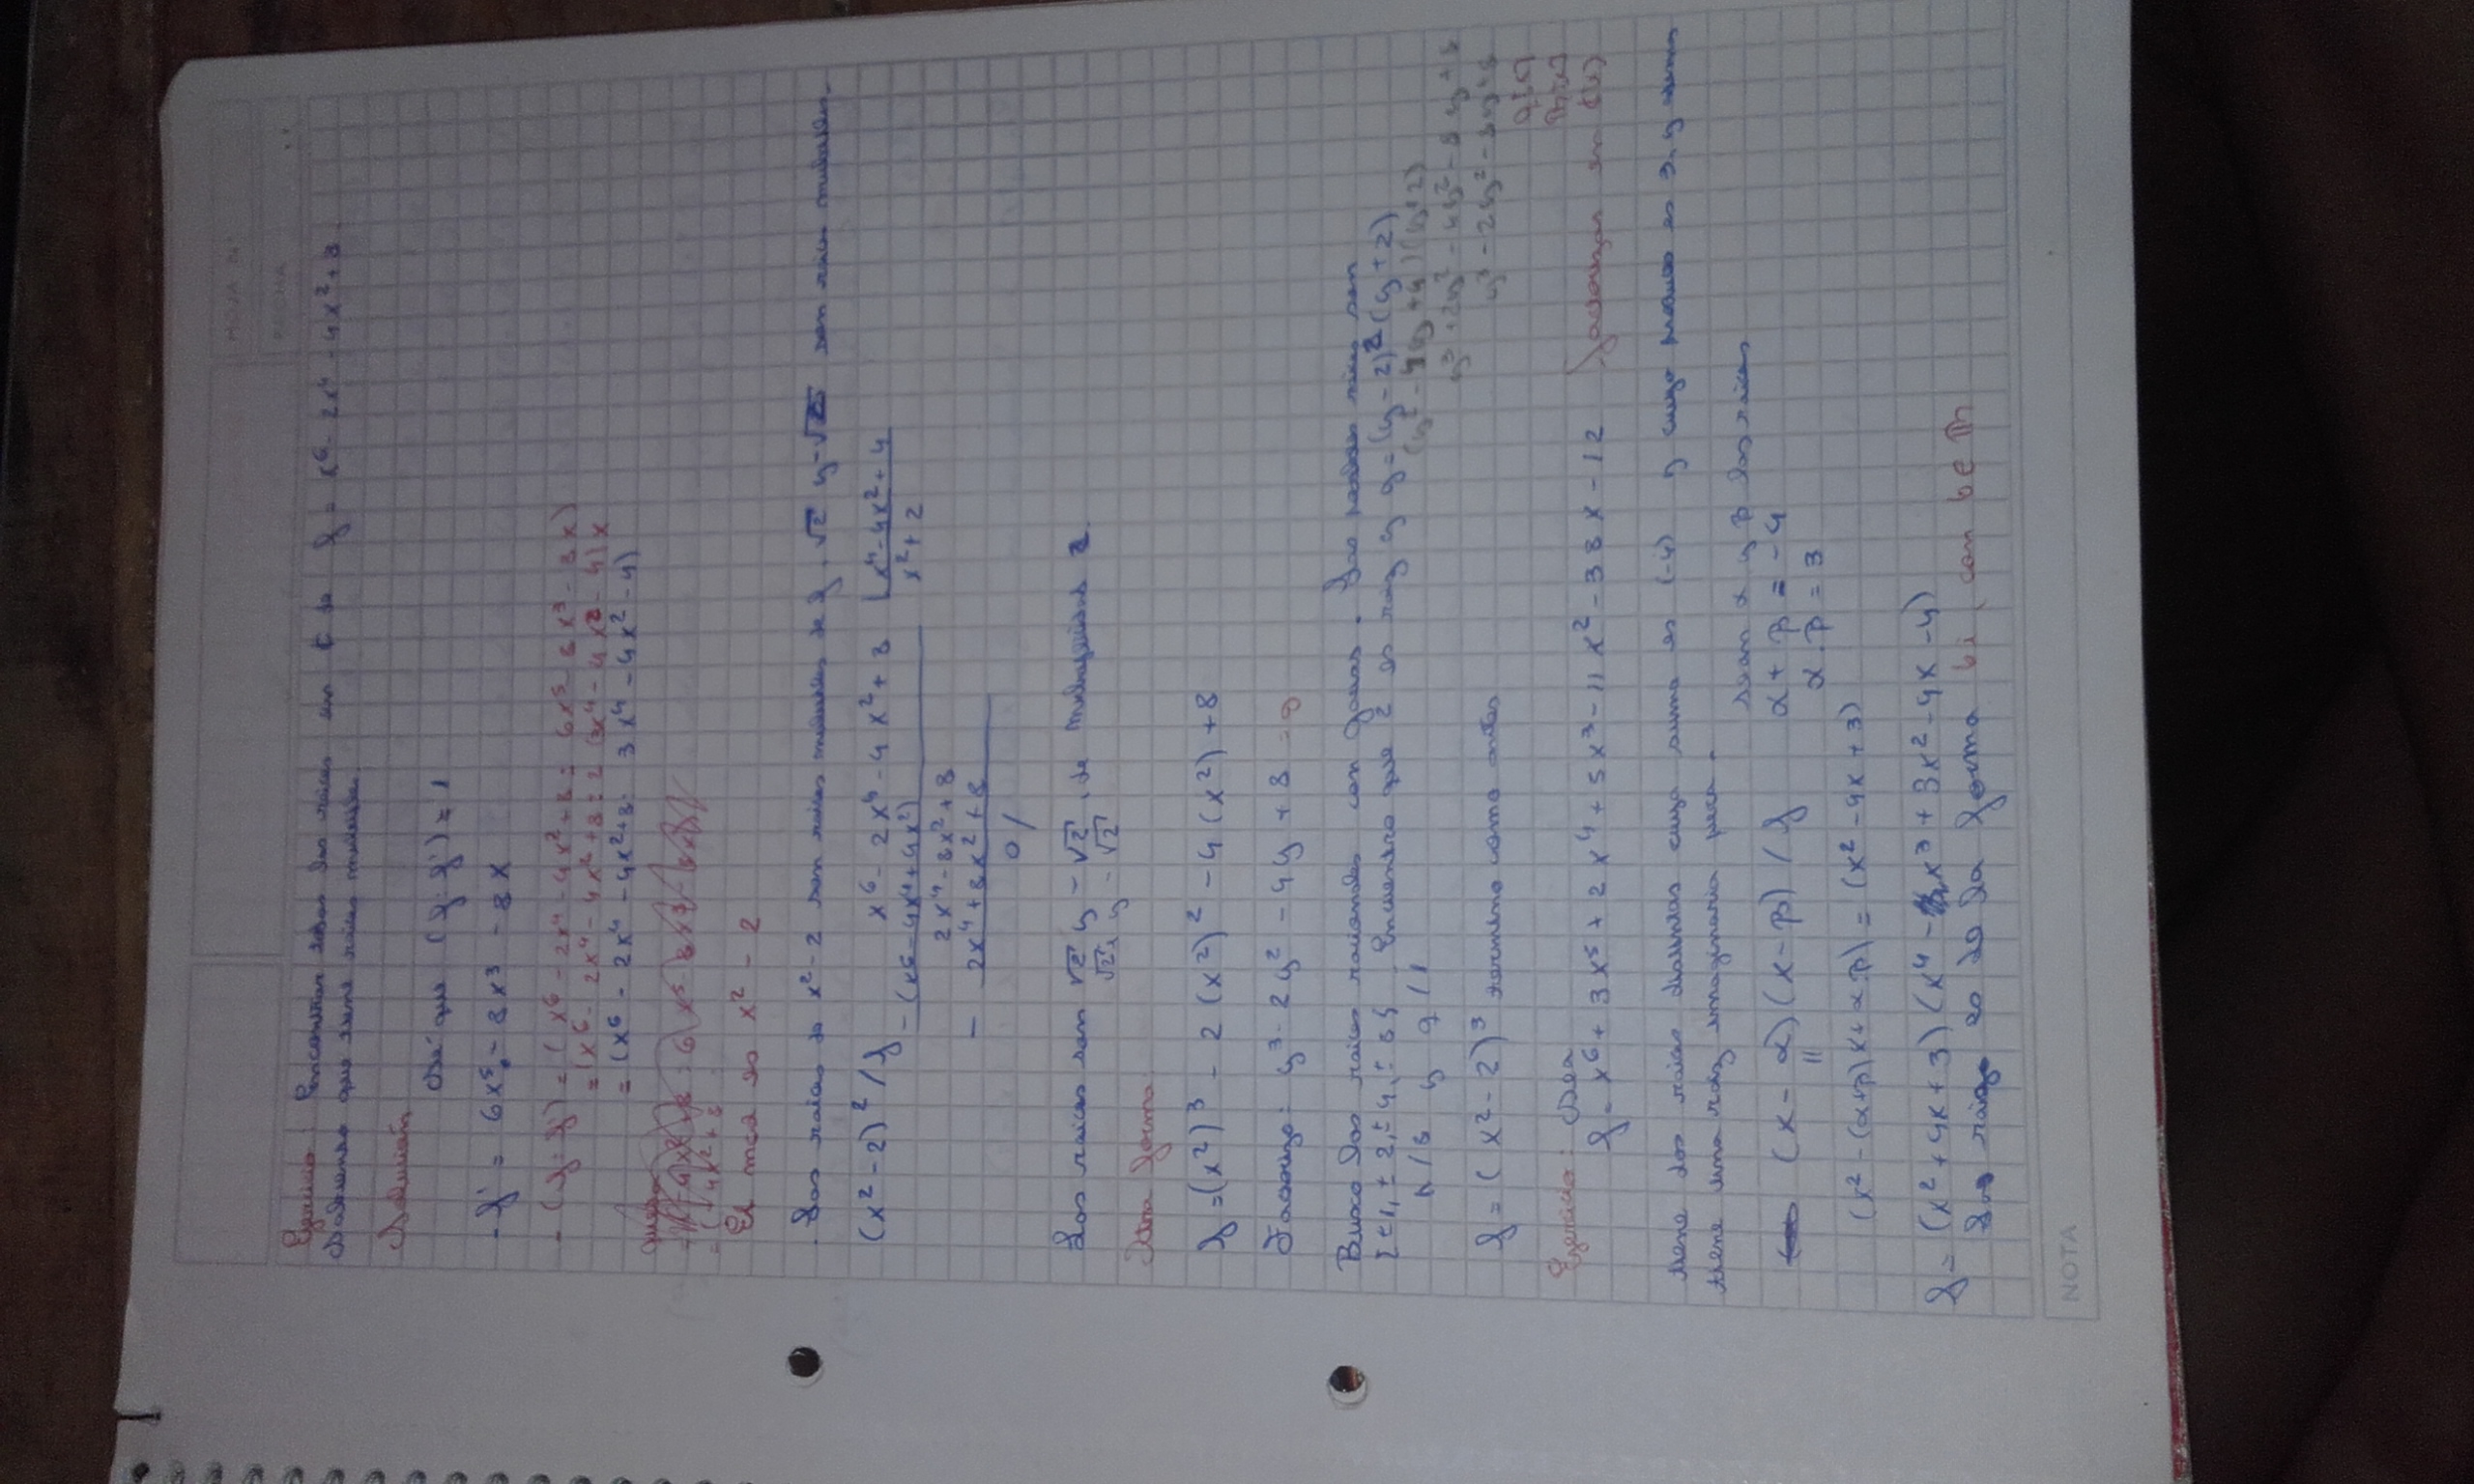 HOJA Nº
FECHA
Ejercicio: Encontrar todas las raíces en C de f = x⁶ - 2x⁴ - 4x² + 8.
Sabiendo que tiene raíces múltiples.
Solución
Sé que (f : f') = 1
- f' = 6x⁵ - 8x³ - 8x
- (f : f') = (x⁶ - 2x⁴ - 4x² + 8 : 6x⁵ - 8x³ - 8x)
= (x⁶ - 2x⁴ - 4x² + 8 : 2 (3x⁴ - 4x² - 4) x
= (x⁶ - 2x⁴ - 4x² + 8 : 3x⁴ - 4x² - 4)
= (-4x² + 8
El mcd es x² - 2
Las raíces de x² - 2 son raíces múltiples de f. √2 y -√2 son raíces múltiples.
(x² - 2)² / f x⁶ - 2x⁴ - 4x² + 8 | x⁴ - 4x² + 4
- (x⁶ - 4x⁴ + 4x²) x² + 2
2x⁴ - 8x² + 8
- 2x⁴ + 8x² + 8
0 /
Las raíces son √2 y -√2, de multiplicidad 2.
√2i y -√2
Otra forma:
f = (x²)³ - 2 (x²)² - 4 (x²) + 8
Factorizo: y³ - 2y² - 4y + 8 = g
Busco las raíces racionales con gauss. Las posibles raíces son
{±1, ±2, ±4, ±8}. Encuentro que 2 es raíz y g = (y - 2)² (y + 2)
(y² - 4y + 4) (y + 2)
/8 y q/1
y³ + 2y² - 4y² - 8y + 8
f = (x² - 2)³ termino como antes
y³ - 2y² - 8y + 8
Ejercicio: Sea
f = x⁶ + 3x⁵ + 2x⁴ + 5x³ - 11x² - 38x - 12 factorizar en C(x)
tiene dos raíces distintas cuya suma es (-4) y cuyo producto es 3, y
tiene una raíz imaginaria pura.
sean α y β las raíces
(x - α)(x - β) / f α + β = -4
|| α . β = 3
(x² - (α+β)x + α.β) = (x² - 4x + 3)
f = (x² + 4x + 3) (x⁴ - x³ + 3x² - 4x - 4)
raíz es de la forma bi, con b ∈ R
NOTA